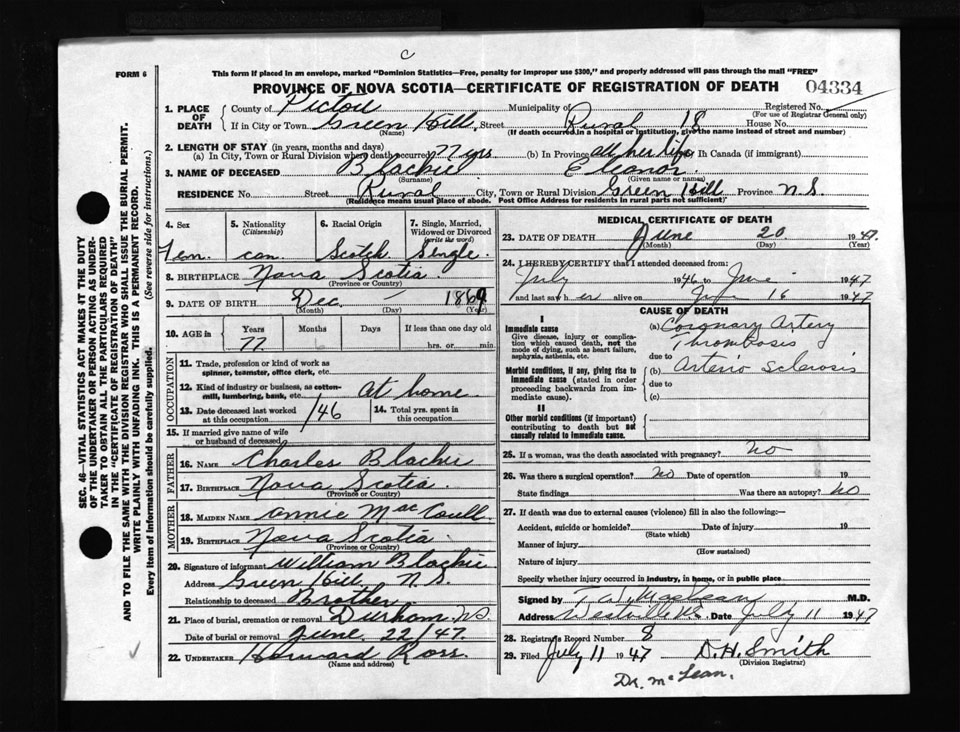 C
FORM 6
This form if placed in an envelope, marked "Dominion Statistics—Free, penalty for improper use $300," and properly addressed will pass through the mail "FREE"
PROVINCE OF NOVA SCOTIA—CERTIFICATE OF REGISTRATION OF DEATH 04334
SEC. 46—VITAL STATISTICS ACT MAKES IT THE DUTY
OF THE UNDERTAKER OR PERSON ACTING AS UNDER-
TAKER TO OBTAIN ALL THE PARTICULARS REQUIRED
IN THE "CERTIFICATE OF REGISTRATION OF DEATH"
AND TO FILE THE SAME WITH THE DIVISION REGISTRAR WHO SHALL ISSUE THE BURIAL PERMIT.
WRITE PLAINLY WITH UNFADING INK. THIS IS A PERMANENT RECORD.
Every item of information should be carefully supplied. (See reverse side for instructions.)
1. PLACE OF DEATH
County of Pictou Municipality of Registered No.
(For use of Registrar General only)
If in City or Town Green Hill Street Rural 18 House No.
(Name) (If death occurred in a hospital or institution, give the name instead of street and number)
2. LENGTH OF STAY (in years, months and days)
(a) In City, Town or Rural Division where death occurred 77 yrs (b) In Province all her life In Canada (if immigrant)
3. NAME OF DECEASED Blackie Eleanor
(Surname) (Given name or names)
RESIDENCE No. Street Rural City, Town or Rural Division Green Hill Province N.S.
(Residence means usual place of abode. Post Office Address for residents in rural parts not sufficient)
4. Sex Fem.
5. Nationality (Citizenship) Can.
6. Racial Origin Scotch
7. Single, Married, Widowed or Divorced (write the word) Single
8. BIRTHPLACE Nova Scotia
(Province or Country)
9. DATE OF BIRTH Dec. — 1869
(Month) (Day) (Year)
10. AGE in Years Months Days If less than one day old
77 hrs. or min.
OCCUPATION
11. Trade, profession or kind of work as spinner, teamster, office clerk, etc.
12. Kind of industry or business, as cotton-mill, lumbering, bank, etc. at home
13. Date deceased last worked at this occupation /46
14. Total yrs. spent in this occupation
15. If married give name of wife or husband of deceased
FATHER
16. NAME Charles Blackie
17. BIRTHPLACE Nova Scotia
(Province or Country)
MOTHER
18. MAIDEN NAME Annie MacCoull
19. BIRTHPLACE Nova Scotia
(Province or Country)
20. Signature of informant William Blackie
Address Green Hill N.S.
Relationship to deceased Brother
21. Place of burial, cremation or removal Durham NS
Date of burial or removal June 22/47.
22. UNDERTAKER Howard Ross
(Name and address)
MEDICAL CERTIFICATE OF DEATH
23. DATE OF DEATH June 20 1947
(Month) (Day) (Year)
24. I HEREBY CERTIFY that I attended deceased from:
July 1946 to June 1947
and last saw her alive on June 16 1947
CAUSE OF DEATH
I
Immediate cause
Give disease, injury or complication which caused death, not the mode of dying, such as heart failure, asphyxia, asthenia, etc.
(a) Coronary Artery
Thrombosis
due to
Morbid conditions, if any, giving rise to immediate cause (stated in order proceeding backwards from immediate cause).
(b) Arterio Sclerosis
due to
(c)
II
Other morbid conditions (if important) contributing to death but not causally related to immediate cause.
25. If a woman, was the death associated with pregnancy? No
26. Was there a surgical operation? No Date of operation 19
State findings Was there an autopsy? No
27. If death was due to external causes (violence) fill in also the following:—
Accident, suicide or homicide? Date of injury 19
(State which)
Manner of injury
(How sustained)
Nature of injury
Specify whether injury occurred in industry, in home, or in public place
Signed by M.D.
Address Westville N.S. Date July 11 1947
28. Registrar's Record Number 8
29. Filed July 11 1947 D.H. Smith
(Division Registrar)
Dr. McLean.